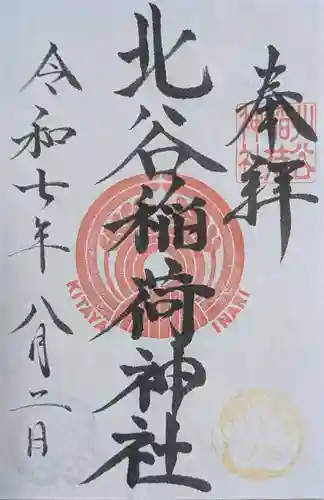 奉拝
北谷稲荷神社
令和七年八月二日
KITAYA INARI